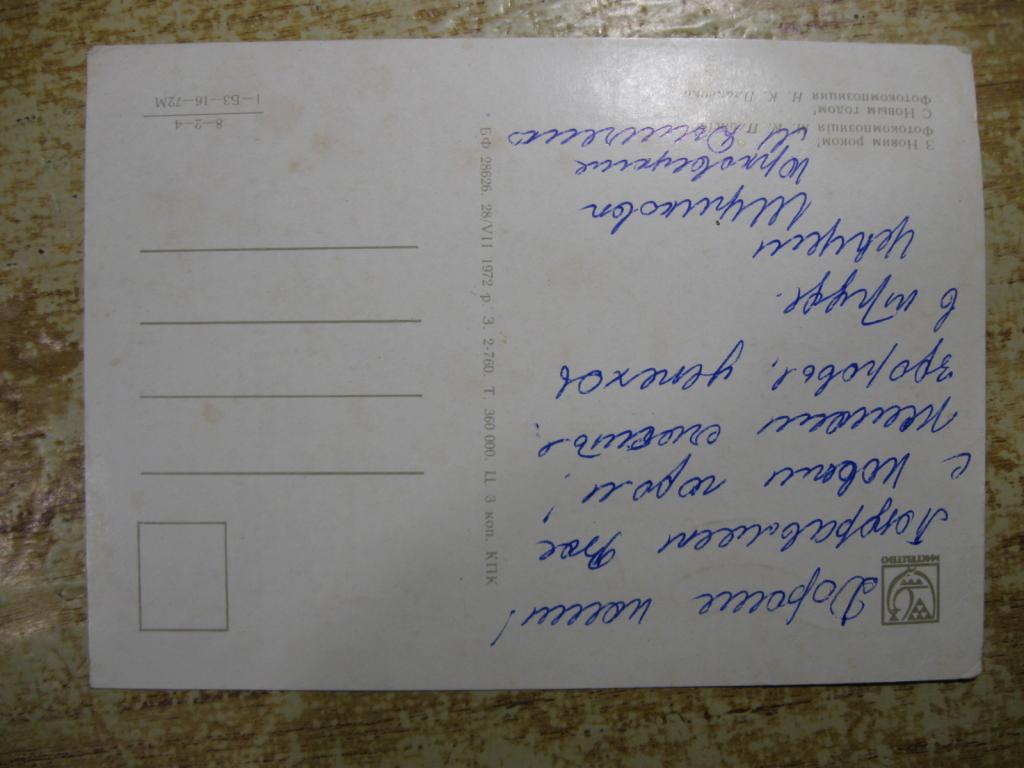 МИСТЕЦТВО
Дорогие наши!
Поздравляем Вас
с новым годом!
Желаем счастья,
здоровья, успехов
в труде.
Целуем
З Новим роком!
Фотокомпозиція
С Новым годом!
Фотокомпозиция Н. К.
БФ 28626. 28/VII 1972 р. З. 2-760. Т. 360 000. Ц. 3 коп. КПК
8—2—4
1—БЗ—16—72М